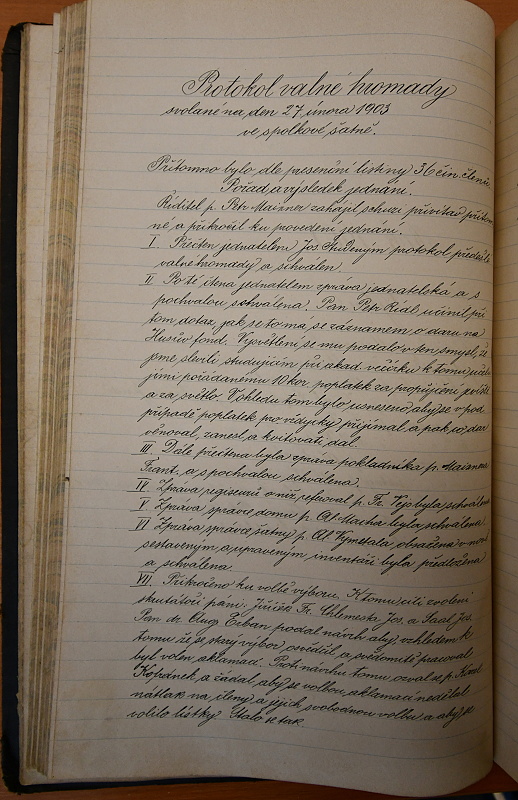 Protokol valné hromady
svolané na den 27. února 1903
ve spolkové šatně.
Přítomno bylo dle presenční listiny 36 čin. členů
Pořad a výsledek jednání.
Ředitel p. Petr Maixner zahájil schůzi přivítav přítom
né a přikročil ku provedení jednání.
I. Přečten jednatelem Jos. Studeným protokol předešlé
valné hromady a schválen.
II Poté čtena jednatelem zpráva jednatelská a s
pochvalou schválena. Pan Petr Riál učinil při
tom dotaz, jak se to má se záznamem o daru na
Husův fond. Vysvětlení se mu podalo v ten smysl, že
jsme slevili studujícím při akad. věčírku k tomu účelu
jimi pořádanému 10 kor. poplatek za propůjčení jeviště
a za světlo. Vzhledu tom bylo usneseno, aby se v pod
případě poplatek pro vždycky přijímal a pak co dar
věnoval, zanesl a kvitovati dal.
III. Dále přečtena byla zpráva pokladníka p. Maixnera
Frant. a s pochvalou schválena.
IV. Zpráva regiseurů o níž referoval p. Fr. Vejs byla schválena
V. Zpráva správce domu p. Al. Macha byla schválena.
VI Zpráva správce šatny p. Al. Vymetala, obsažena v nově
sestaveným a upraveným inventáři byla předložena
a schválena.
VII. Přikročeno ku volbě výboru. K tomu cíli zvoleni
skrutátoři páni: Jiříček Fr. Chlemesta Jos. a Saal Jos.
Pan dr. Aug. Erban podal návrh aby, vzhledem k
tomu že se starý výbor osvědčil a svědomitě pracoval
byl volen aklamací. Proti návrhu tomu ozval se p. Karel
Kopánek a žádal, aby se volbou aklamací nedělal
nátlak na členy a jejich svobodnou volbu a aby se
volilo lístky. Stalo se tak